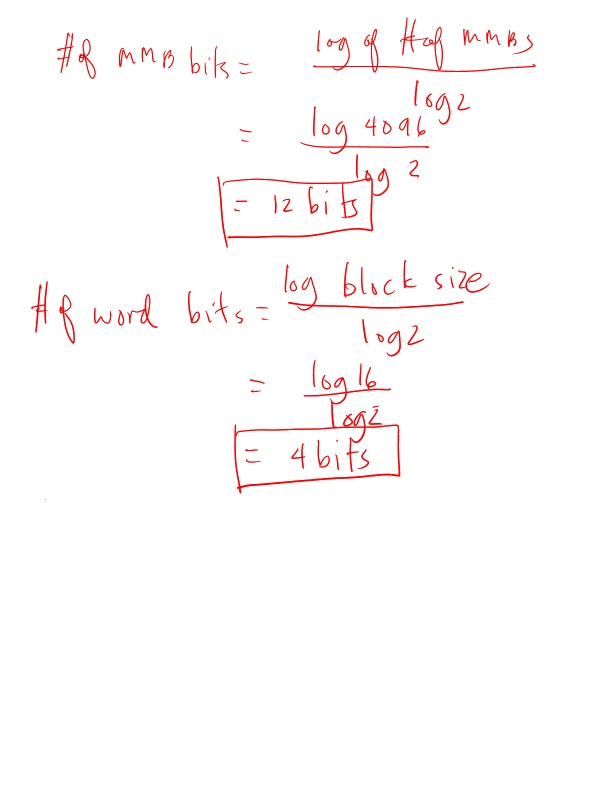 # of MMB bits = log of # of MMBs
log 2
= log 4096
log 2
= 12 bits
# of word bits = log block size
log 2
= log 16
log 2
= 4 bits